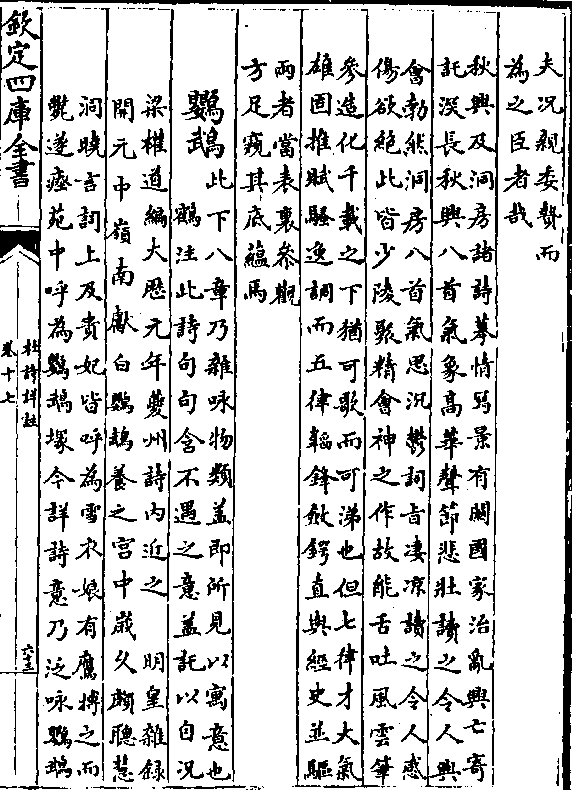 夫况親委贄而
為之臣者哉
秋興及洞房諸詩摹情寫景有關國家治亂興亡寄
託深長秋興八首氣象高華聲節悲壯讀之令人興
會勃然洞房八首氣思沉鬱詞旨凄凉讀之令人感
傷欲絶此皆少陵聚精會神之作故能舌吐風雲筆
參造化千載之下猶可歌而可涕也但七律才大氣
雄固推賦騷逸調而五律韜鋒斂鍔直與經史並驅
兩者當表裏參觀
方足窺其底蘊焉
鸚鵡 此下八章乃雜咏物類蓋即所見以寓意也
鶴注此詩句句含不遇之意蓋託以自况
梁權道編大歷元年夔州詩内近之 明皇雜録
開元中嶺南獻白鸚鵡養之宫中歲久頗聰慧
洞曉言詞上及貴妃皆呼為雪衣娘有鷹搏之而
斃遂瘞苑中呼為鸚鵡塚今詳詩意乃泛咏鸚鵡
欽定四庫全書
杜詩詳註
卷十七
六十三